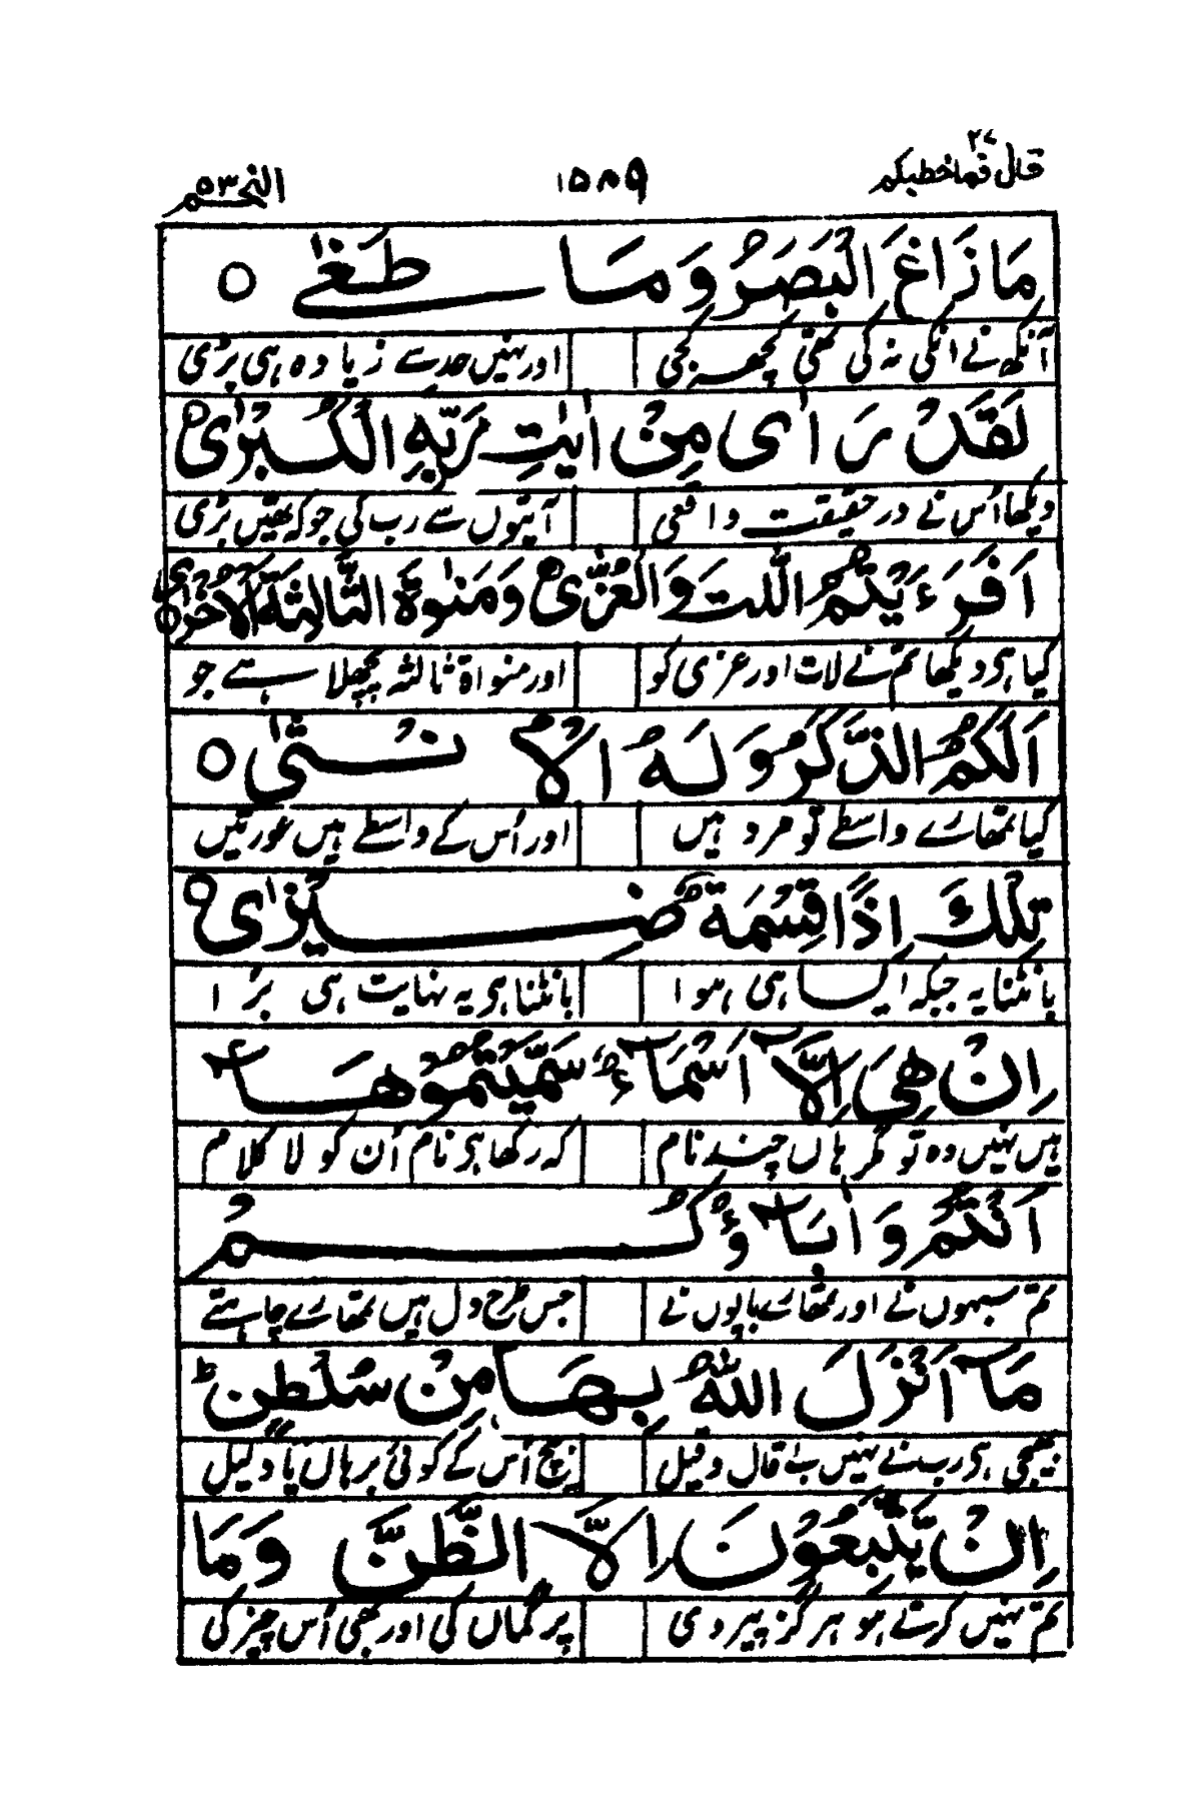 قال فما خطبکم ۲۷ ۱۵۸۹ النجم ۵۳
مَا زَاغَ الْبَصَرُ وَمَا طَغٰی ○
آنکھ نے انکی نہ کی تھی کچھ کجی اور نہیں حد سے زیادہ ہی بڑی
لَقَدْ رَاٰی مِنْ اٰیٰتِ رَبِّهِ الْکُبْرٰی ○
دیکھا اُس نے در حقیقت واقعی آیتوں سے رب کی جو کہ تھیں بڑی
اَفَرَءَیْتُمُ اللّٰتَ وَالْعُزّٰی ○ وَمَنٰوةَ الثَّالِثَةَ الْاُخْرٰی ○
کیا ہی دیکھا تم نے لات اور عزی کو اور منواۃ ثالثہ پچھلا ہے جو
اَلَکُمُ الذَّکَرُ وَلَهُ الْاُنْثٰی ○
کیا تمھارے واسطے تو مرد ہیں اور اُس کے واسطے ہیں عورتیں
تِلْکَ اِذًا قِسْمَةٌ ضِیْزٰی ○
بانٹنا یہ جبکہ ایسا ہی ہوا بانٹنا ہی یہ نہایت ہی بُرا
اِنْ هِیَ اِلَّاۤ اَسْمَآءٌ سَمَّیْتُمُوْهَاۤ
ہیں نہیں وہ تو مگر ہاں چند نام کہ رکھا ہی نام اُن کو لا کلام
اَنْتُمْ وَاٰبَآؤُکُمْ
تم سبھوں نے اور تمھارے باپوں نے جس طرح دل ہیں تمھارے چاہتے
مَاۤ اَنْزَلَ اللّٰهُ بِهَا مِنْ سُلْطٰنٍ ؕ
بھیجی ہی رب نے نہیں بے قال و قیل بیچ اُس کے کوئی برہاں یا دلیل
اِنْ یَّتَّبِعُوْنَ اِلَّا الظَّنَّ وَمَا
تم نہیں کرتے ہو ہرگز پیروی پر گماں کی اور بھی اُس چیز کی